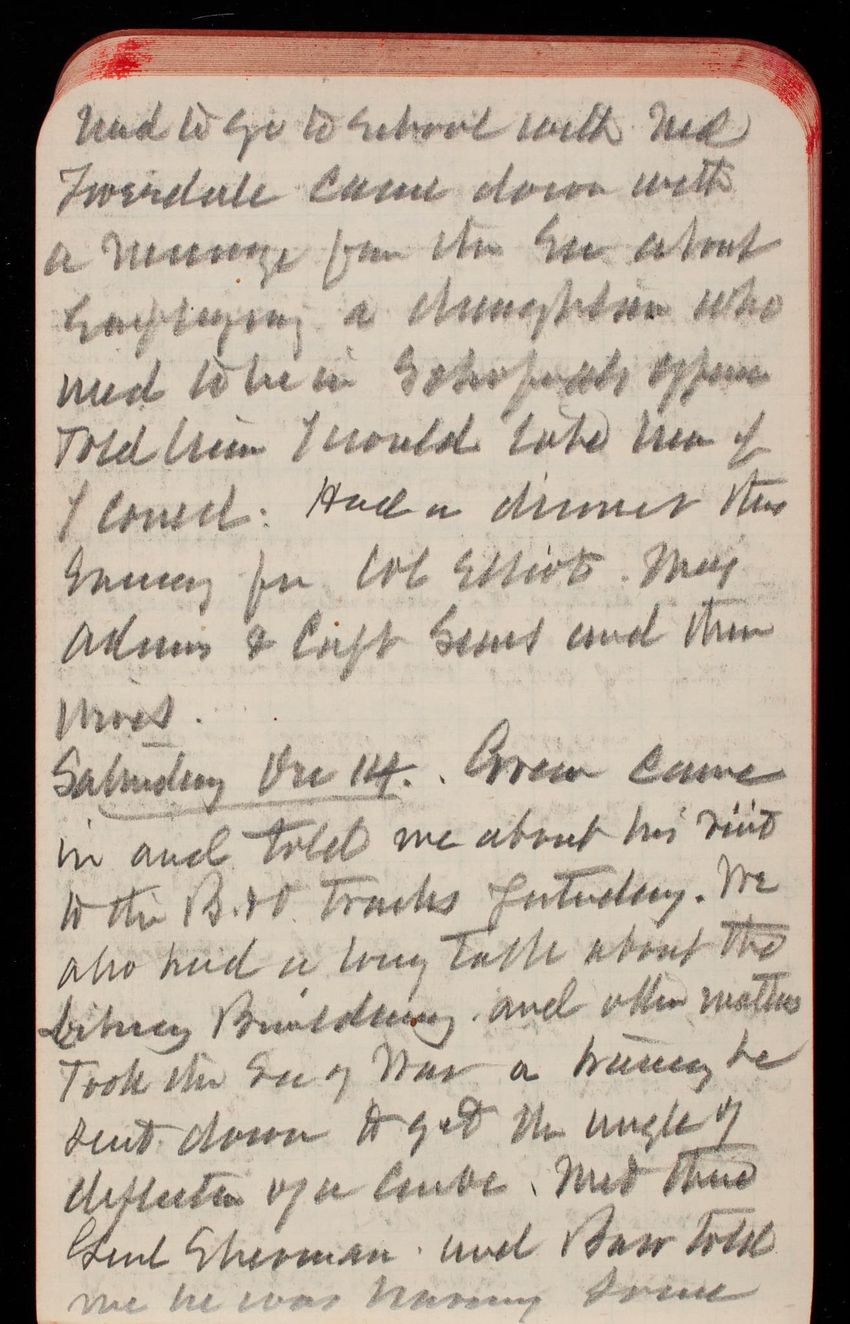 had to go to school with Ned
Tweedale came down with
a message from the Sec about
Employing a draughtsman who
used to be in office
Told him I would take him if
I could. Had a dinner this
Evening for Col Elliot. Maj
Adams & Capt and their
wives.
Saturday Dec 14. Green came
in and told me about his visit
to the B.&O. Tracks yesterday. We
also had a long talk about the
Library Building. and other matters
Took the Sec of War a he
sent down to get the angle of
deflection of a curve. Met there
Genl Sherman. and told
me he was having some